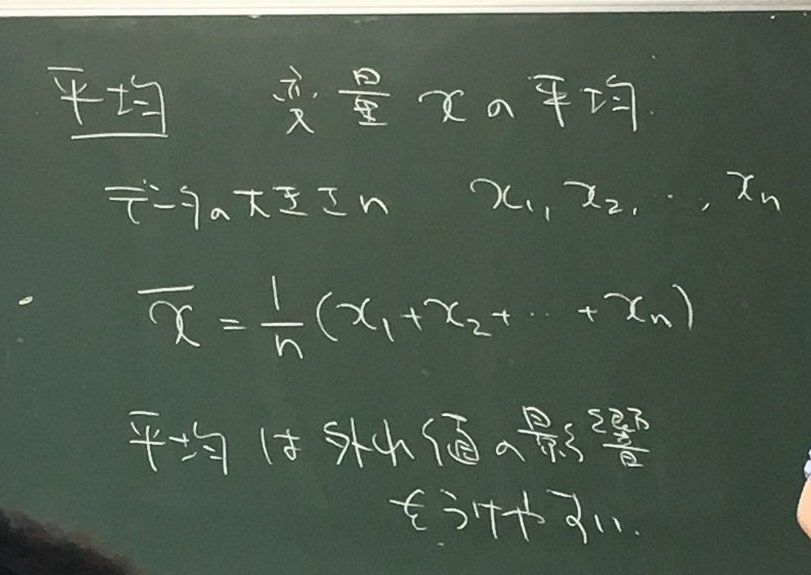 平均 変量 x の平均.
データの大きさ n x₁, x₂, ‥, xₙ
x̅ = 1/n (x₁+x₂+‥+xₙ)
平均は外れ値の影響
をうけやすい.